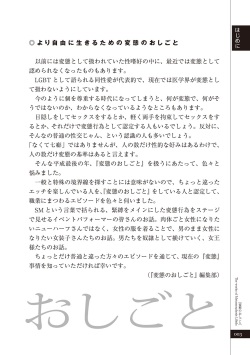 ◎より自由に生きるための変態のおしごと
以前には変態として扱われていた性嗜好の中に、最近では変態として
認められなくなったものもあります。
LGBTとして語られる同性愛が代表的で、現在では医学界が変態とし
て扱わないようにしています。
今のように個を尊重する時代になってしまうと、何が変態で、何がそ
うではないのか、わからなくなっているところもあります。
目隠しをしてセックスをするとか、軽く両手を拘束してセックスをす
るとか、それだけで変態行為として認定する人もいるでしょう。反対に、
そんなの普通の性交じゃん、という認識の人もいるでしょう。
「なくて七癖」ではありませんが、人の数だけ性的な好みはあるわけで、
人の数だけ変態の基準もあると考えることができます。
そんな平成最後の年、『変態のおしごと』を始めるにあたって、色々と
悩みました。
一般と特殊の境界線を探すことには意味がないので、ちょっと違った
エッチを愉しんでいる人を、『変態のおしごと』をしている人と認定して、
職業にまつわるエピソードを色々と伺いました。
SMという言葉で括られる、緊縛をメインにした変態行為をステージ
で見せるイベントパフォーマーの皆さんのお話。肉体ごと女性になりた
いニューハーフさんではなく、女性の服を着ることで、男のまま女性に
なりたい女装子さんたちのお話。男たちを奴隷として躾けていく、女王
様たちのお話。
ちょっとだけ普通と違った方々のエピソードを通じて、現在の『変態』
事情を知っていただければ幸いです。
(『変態のおしごと』編集部)
はじめに
『変態のおしごと』
003
おしごと